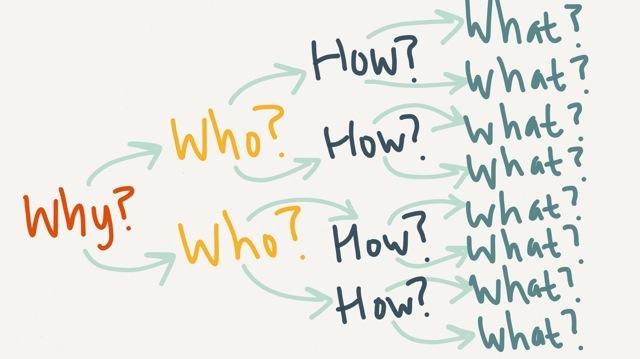 Why?
Who?
Who?
How?
How?
How?
How?
What?
What?
What?
What?
What?
What?
What?
What?